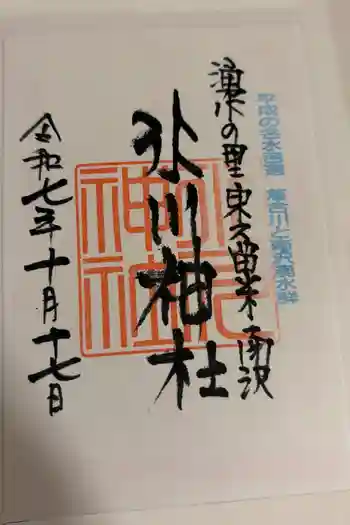 平成の名水百選 落合川と南沢湧水群
湧水の里東久留米南沢
氷川神社
氷川神社
令和七年十月十七日